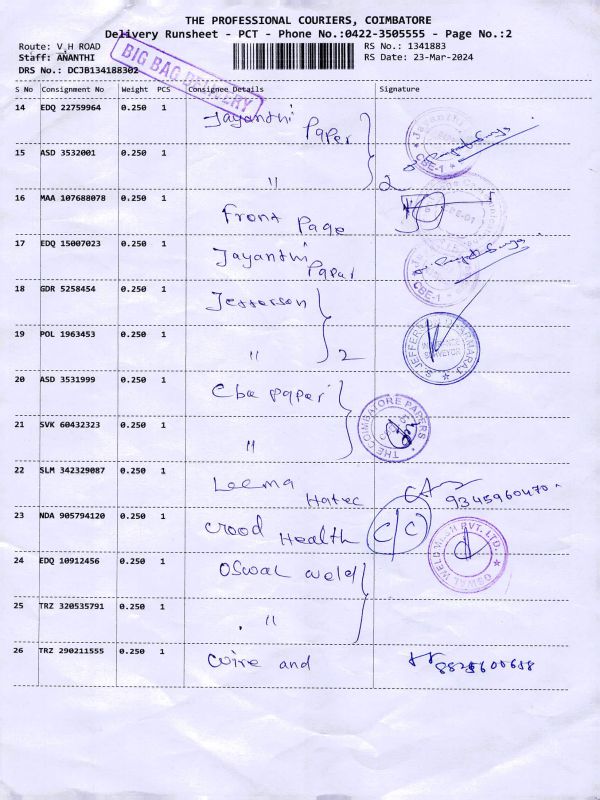 THE PROFESSIONAL COURIERS, COIMBATORE
Delivery Runsheet - PCT - Phone No.:0422-3505555 - Page No.:2
Route: V.H ROAD RS No.: 1341883
Staff: ANANTHI RS Date: 23-Mar-2024
DRS No.: DCJB134188302
BIG BAG DELIVERY
S No Consignment No Weight PCS Consignee Details Signature
14 EDQ 22759964 0.250 1 Jayanthi Paper
15 ASD 3532001 0.250 1 " 2
CBE-1
16 MAA 107688078 0.250 1 Front Page
17 EDQ 15007023 0.250 1 Jayanthi Paper
CBE-1
18 GDR 5258454 0.250 1 Jefferson
19 POL 1963453 0.250 1 " 2
SURVEYOR
20 ASD 3531999 0.250 1 Cbe paper
THE COIMBATORE PAPERS
21 SVK 60432323 0.250 1 "
22 SLM 342329087 0.250 1 Leema Hatec 9345960470
23 NDA 905794120 0.250 1 Good Health C/C
24 EDQ 10912456 0.250 1 Oswal weld
OSWAL WELD MESH PVT. LTD.
25 TRZ 320535791 0.250 1 "
26 TRZ 290211555 0.250 1 Wire and